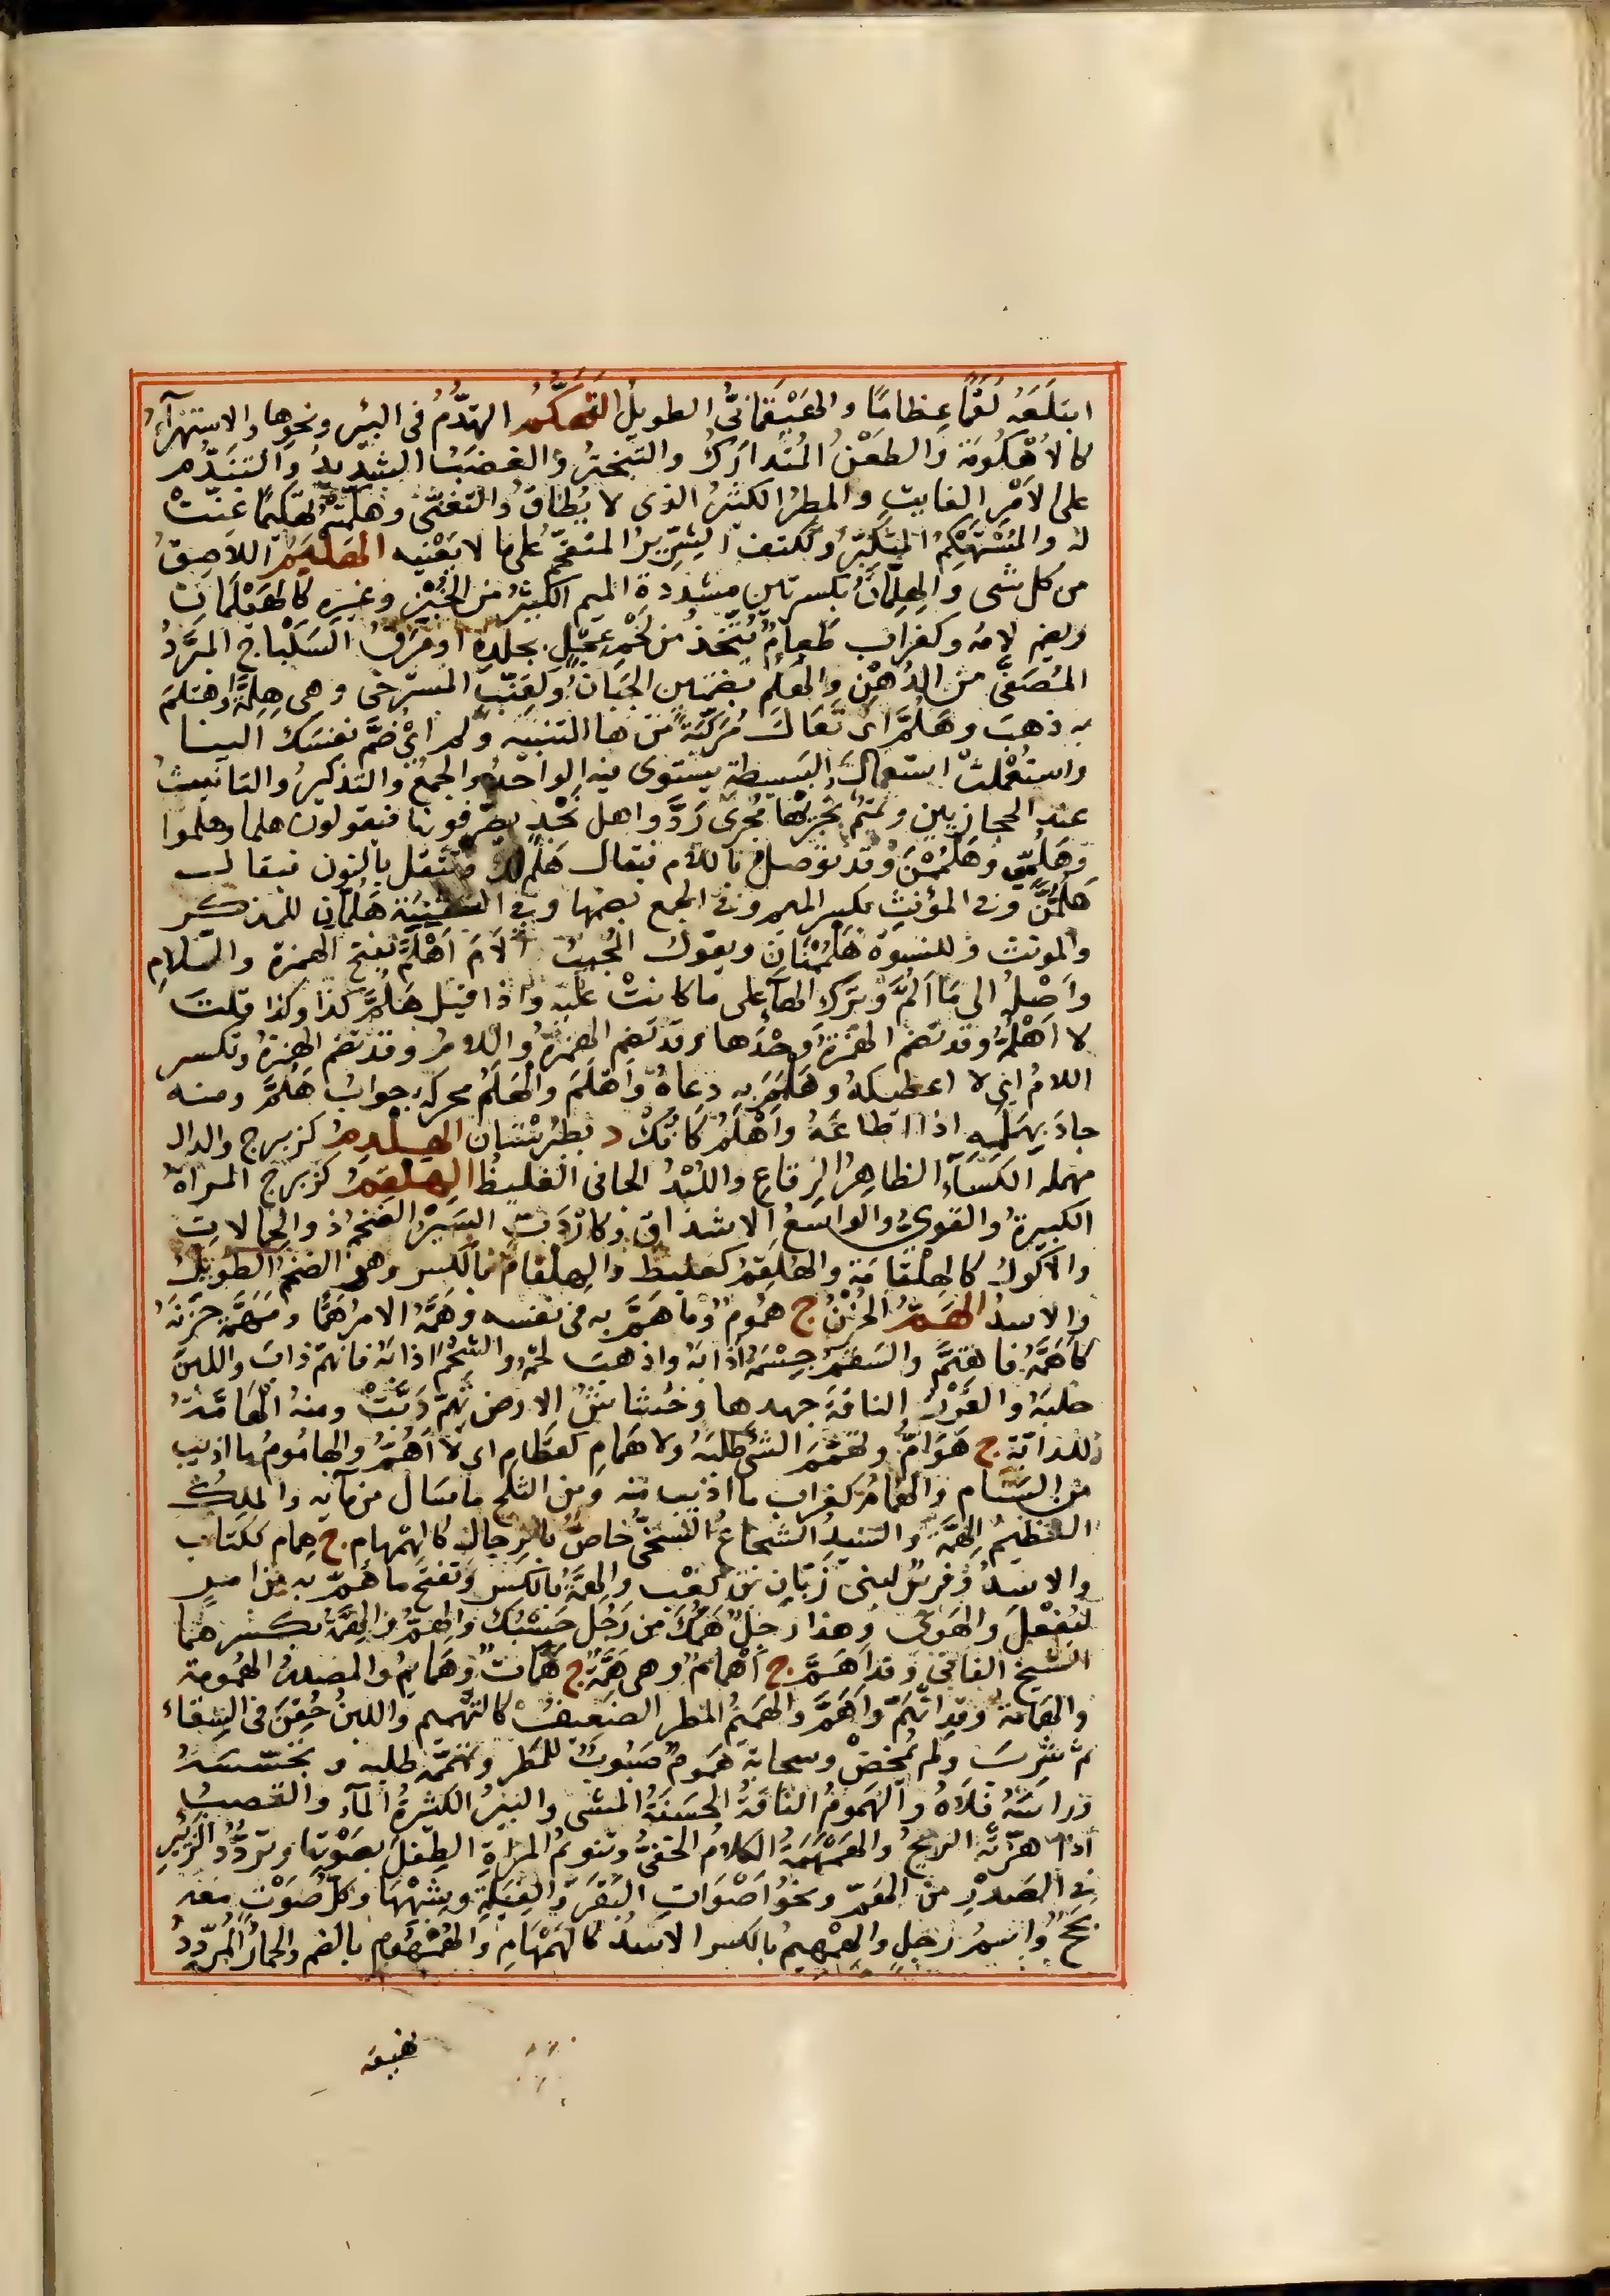 ابتلعه لقما عظاما والهيقمانى الطويل التهكم التهدم فى البئر ونحوها والاستهزآء
كالاهكومة والطعن المتدارك والتبختر والغضب الشديد والتندم
على الامر الفايت والمطر الكثير الذى لا يطاق والتغنى وهكمته تهكيما غنيت
له والمستهكم المتكبر وككتف الشرير المتقحم على ما لا يعنيه الهليم اللاصق
من كل شى والهلمان بكسرتين مشددة الميم الكثير من الخير وغيره كالهيلمان
وبضم لامه وكغراب طعام يتخذ من لحم عجل بجلده او مرق السكباج المبرد
المصفى من الدهن والهلم بضمتين الجبان وكقنب المسترخى وهى هلمة واهتلم
به ذهب وهلم اى تعال مركبة من ها التنبيه ولم اى ضم نفسك الينا
واستعملت استعمال البسيطة يستوى فيه الواحد والجمع والتذكير والتانيث
عند الحجازيين وتميم تجريها مجرى رد واهل نجد يصرفونها فيقولون هلما وهلموا
وهلمى وهلممن وقد توصل باللام فيقال هلم لك وتثقل بالنون فيقال
هلمن وفى المؤنث بكسر الميم وفى الجمع بضمها وفى التثنية هلمان للمذكر
والمونث وللنسوة هلممنان ويقول المجيب الام اهلم بفتح الهمزة واللام
واصله الى ما الم وترك الهآء على ما كانت عليه واذا قيل هلم كذا وكذا قلت
لا اهلمه وقد تضم الهمزة وحدها وقد تضم الهمزة واللام وقد تضم الهمزة وتكسر
اللام اى لا اعطيكه وهلمم به دعاه واهتلم والهلم محركة جواب هلم ومنه
جاد بهلمه اذا اطاعه واهلم كانك د بطبرستان الهلدم كزبرج والدال
مهمله الكسآء الظاهر الرقاع واللبد الجافى الغليظ الهلقم كزبرج المراة
الكبيرة والقوى والواسع الاشداق وكاردب السير الضخم ذو الحمالات
والاكول كالهلقامة والهلقم كعلبط والهلقام بالكسر وهو الضخم الطويل
والاسد الهم الحزن ج هموم وما هم به فى نفسه وهمه الامر هما ومهمة حزنه
كاهمه فاهتم والسقم جسمه اذابه واذهب لحمه والشحم اذابه فانهم ذاب واللبن
حلبه والغزر الناقة جهدها وخشاش الارض تهم دبت ومنه الهامة
للدابة ج هوام وتهمم الشى طلبه ولا همام كقطام اى لا اهم والهاموم ما اذيب
من السنام والهمام كغراب ما اذيب منه ومن الثلج ما سال من مآئه والملك
العظيم الهمة والسيد الشجاع السخى خاص بالرجال كالهمهام ج همام ككتاب
والاسد وفرس لبنى زبان بن كعب والهمة بالكسر وتفتح ما هم به من امر
ليفعل والهوى وهذا رجل همك من رجل حسبك والهم والهمة بكسرهما
الشيخ الفانى وقد اهم ج اهمام وهى همة ج همات وهمايم والمصدر الهمومة
والهمامة وقد انهم واهم والهميم المطر الضعيف كالتهميم واللبن حقن فى السقاء
ثم شرب ولم يمخض وسحابة هموم صبوب للمطر وتهممه طلبه وتحسسه
وراسه فلاه والهموم الناقة الحسنة المشى والبير الكثيرة المآء والقصب
اذا هزته الريح والهمهمة الكلام الخفى وتنويم المراة الطفل بصوتها وتردد الزئير
فى الصدر من الهم ونحو اصوات البقر والفيلة وشبهها وكل صوت معه
بحح واسم رجل والهمهيم بالكسر الاسد كالهمهام والهمهوم بالضم والحمار المردد
نهيقه